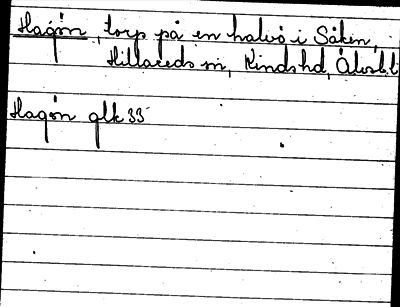 Hagön, torp på en halvö i Såken,
Hillareds sn, Kinds hd, Älvsb.l
Hagön glk 33